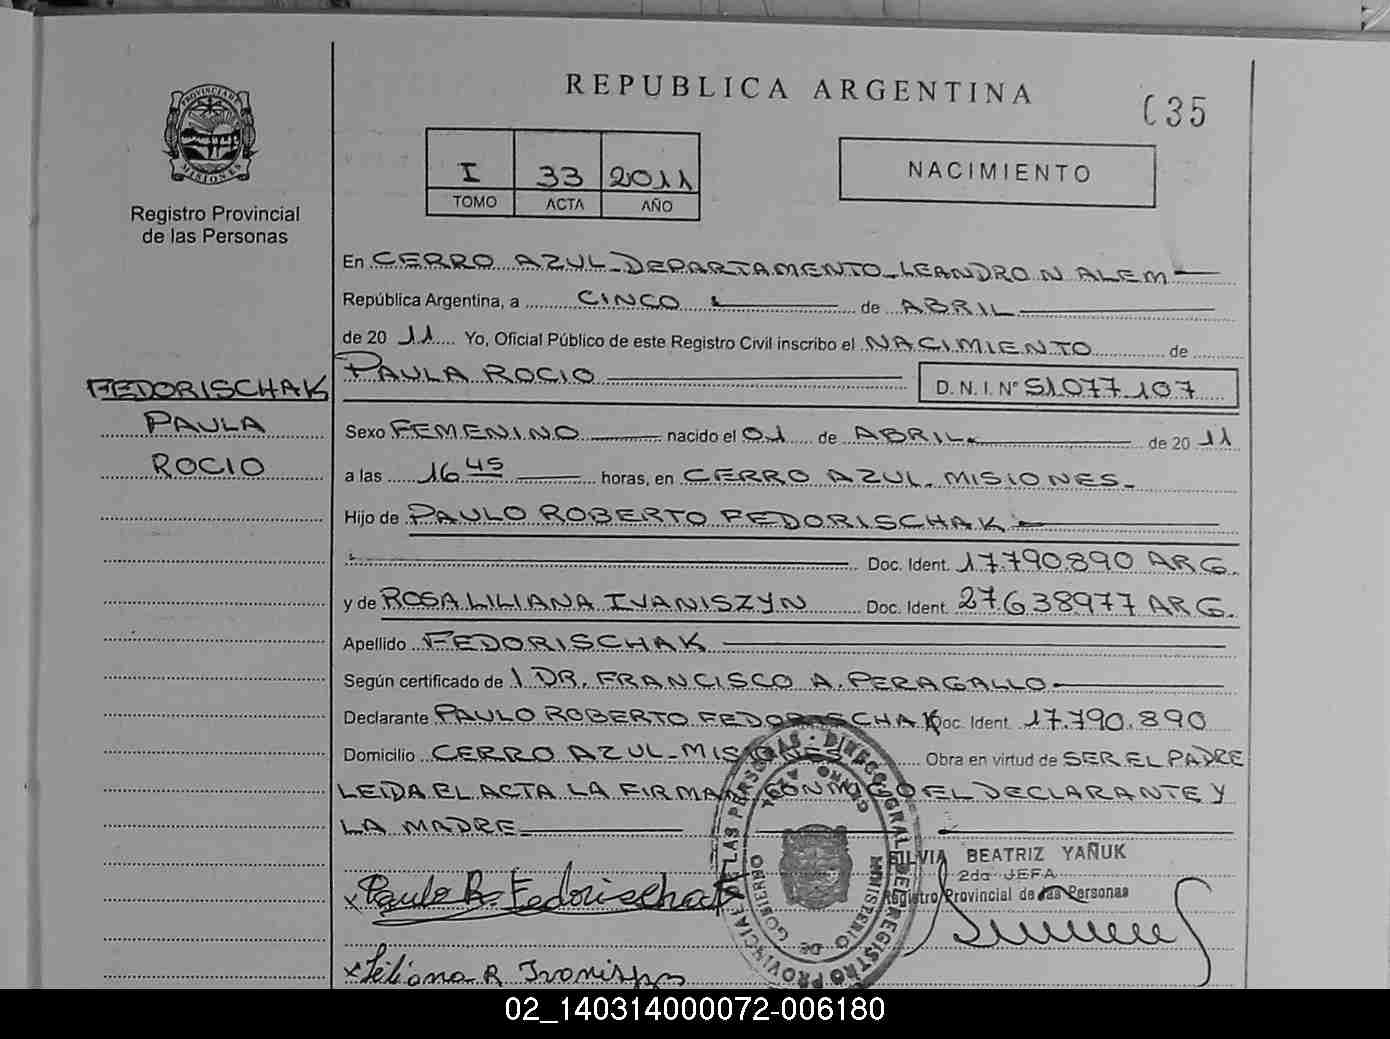 REPUBLICA ARGENTINA
035
PROVINCIA DE
MISIONES
Registro Provincial
de las Personas
I 33 2011
TOMO ACTA AÑO
NACIMIENTO
En CERRO AZUL_DEPARTAMENTO_LEANDRO N ALEM
República Argentina, a CINCO de ABRIL
de 2011 Yo, Oficial Público de este Registro Civil inscribo el NACIMIENTO de
PAULA ROCIO D. N. I. Nº 51.077.107
FEDORISCHAK
PAULA
ROCIO
Sexo FEMENINO nacido el 01 de ABRIL. de 2011
a las 16 45 horas, en CERRO AZUL. MISIONES_
Hijo de PAULO ROBERTO FEDORISCHAK
Doc. Ident. 17.790.890 ARG.
y de ROSA LILIANA IVANISZYN Doc. Ident. 27638977 ARG.
Apellido FEDORISCHAK
Según certificado de 1 DR. FRANCISCO A. PERAGALLO
Declarante PAULO ROBERTO FEDORISCHAK Doc. Ident. 17.790.890
Domicilio CERRO AZUL_MISIONES Obra en virtud de SER EL PADRE
LEIDA EL ACTA LA FIRMAN CONMIGO EL DECLARANTE Y
LA MADRE
SILVIA BEATRIZ YAÑUK
2da JEFA
Registro Provincial de las Personas
x Paulo R. Fedorischak
x Liliana R
DIRECC. GRAL. DEL REGISTRO PROVINCIAL DE LAS PERSONAS
MINISTERIO DE GOBIERNO
CERRO AZUL
02_140314000072-006180